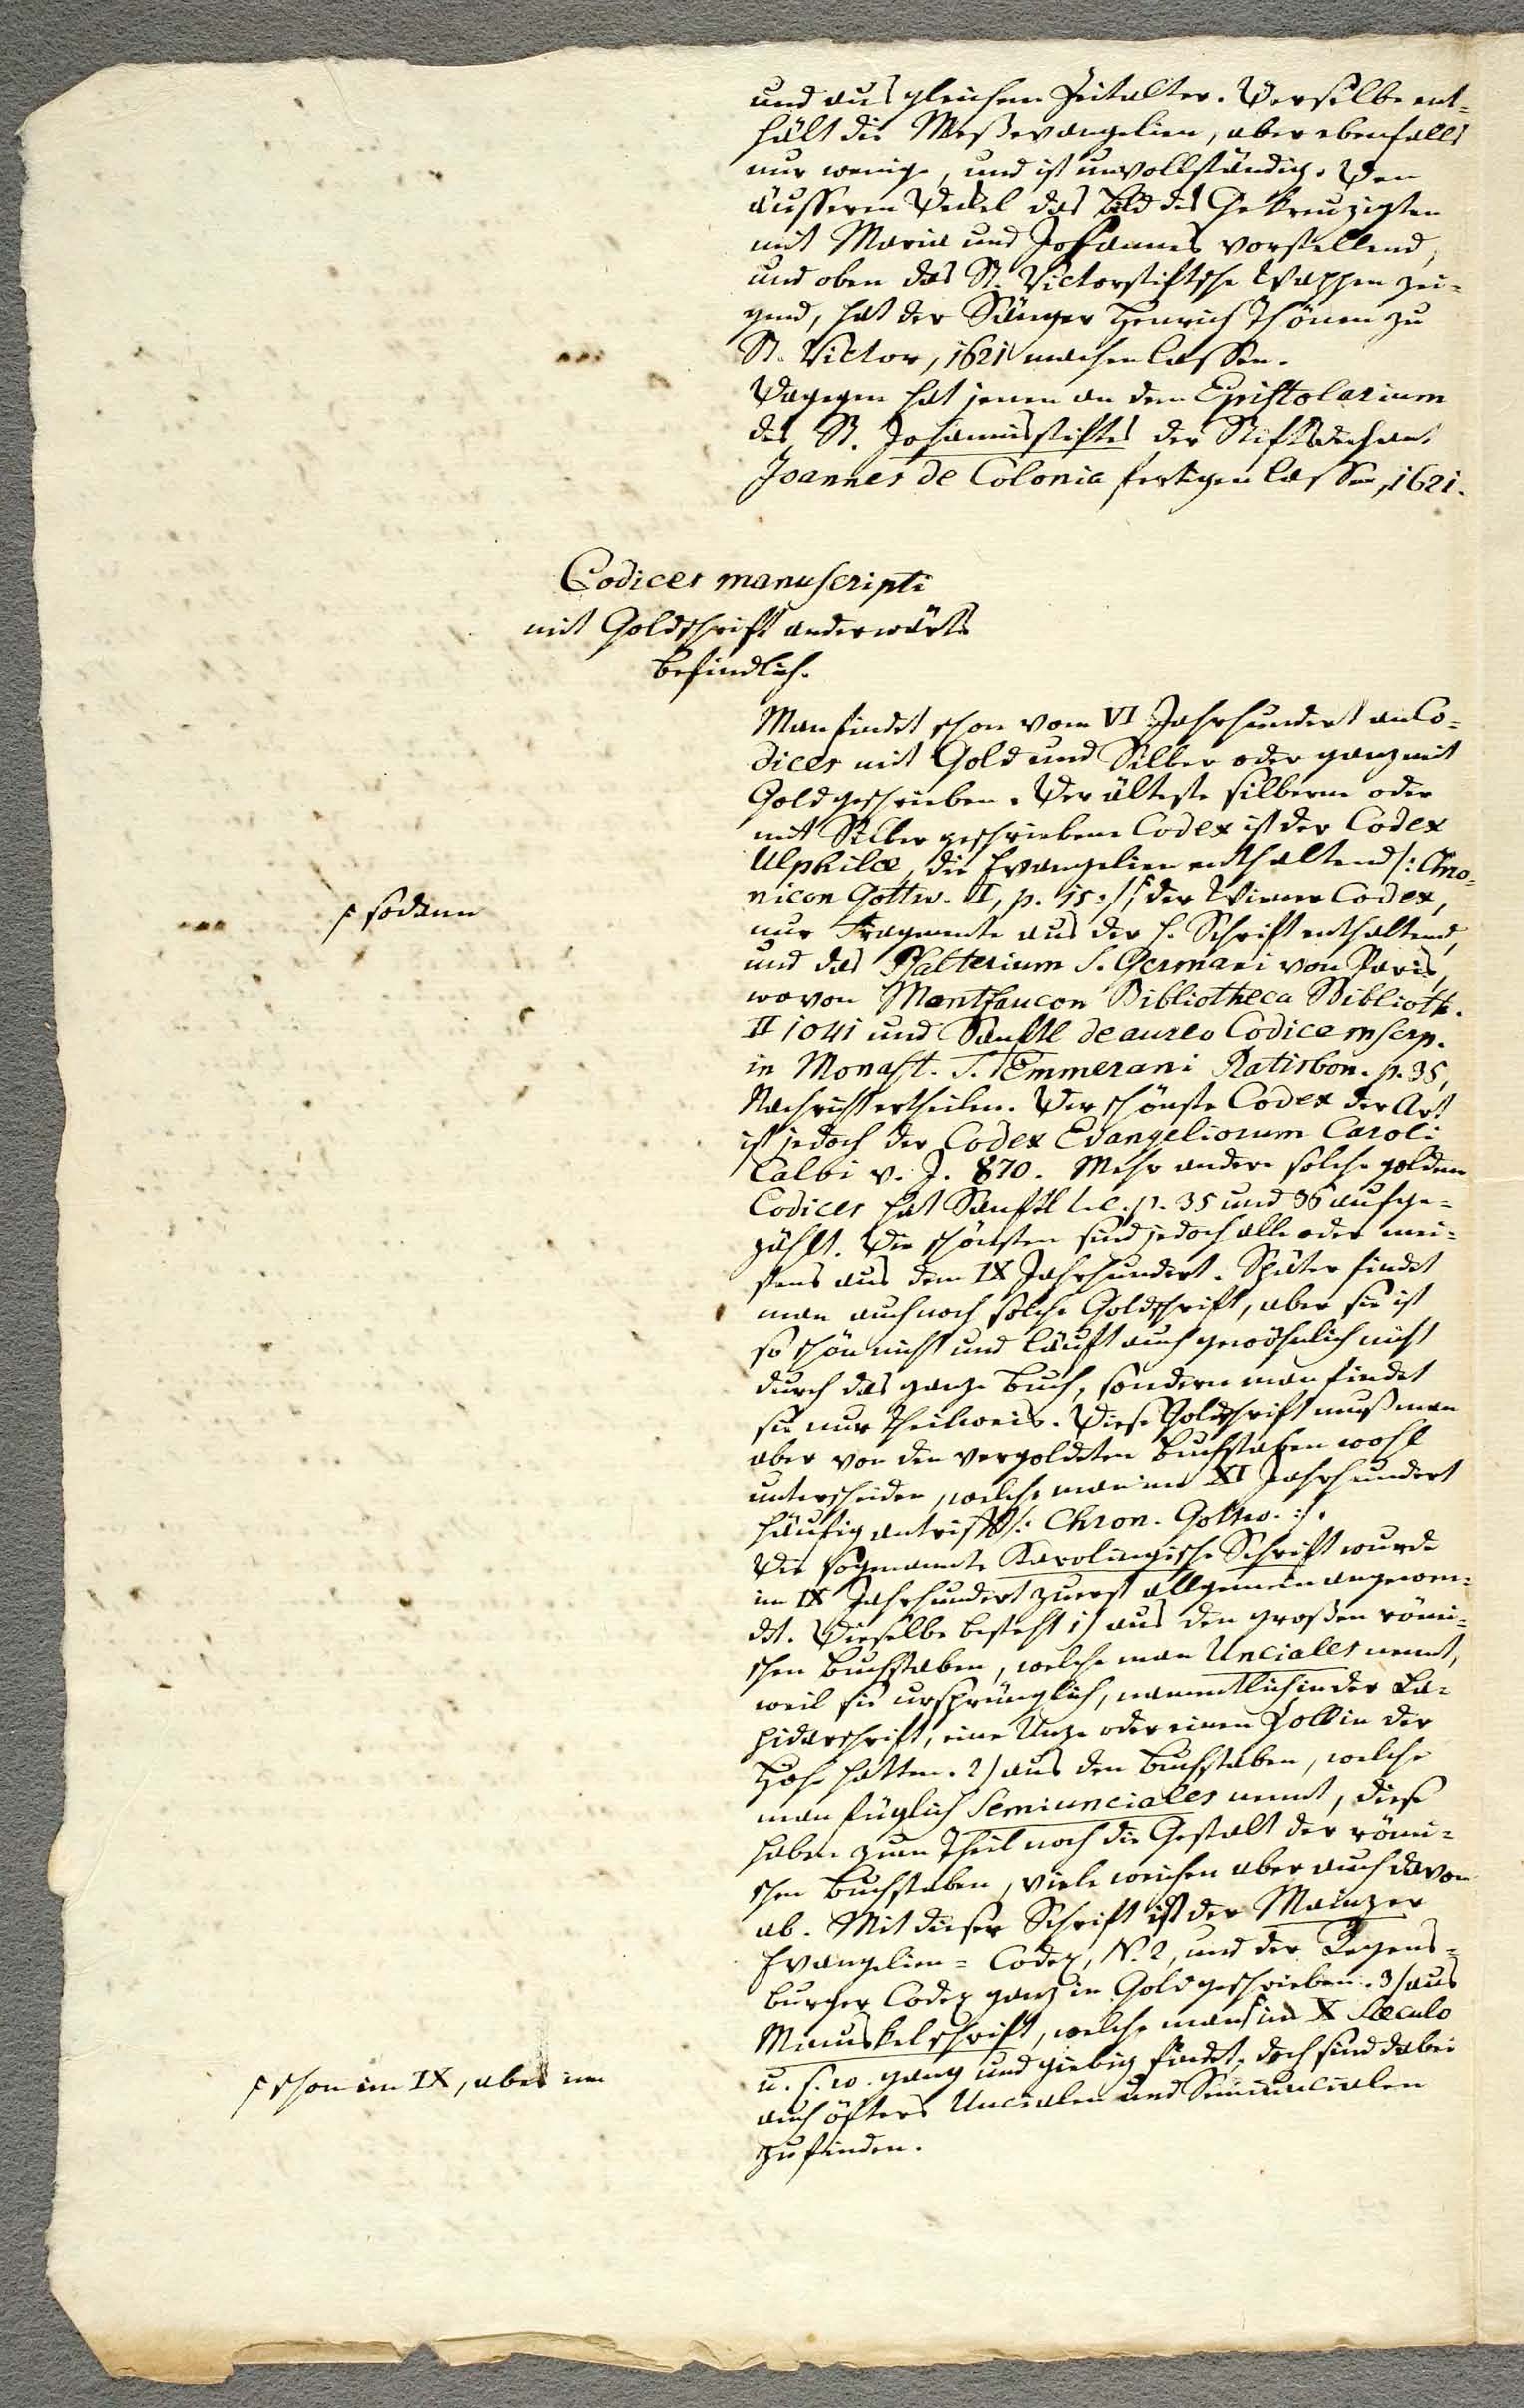 und aus gleichem Zeitalter. Derselbe ent=
hält die Meßevangelien, aber ebenfalls
nur wenige, und ist unvollständig. Den
äusseren Deckel das Bild des Gekreuzigten
mit Maria und Johannes vorstellend,
und oben das St. Victorstiftsche Wappen zei=
gend, hat der Sänger Henrich Thönen zu
St. Victor, 1621 machen lassen.
Dagegen hat jenen an dem Epistolarium
des St. Johannisstiftes der Stiftsdechant
Joannes de Colonia fertigen lassen, 1621.
Codices manuscripti
mit Goldschrift anderwärts
befindlich.
Man findet schon vom VI Jahrhundert an Co=
dices mit Gold und Silber oder ganz mit
Gold geschrieben. Der älteste silberne oder
mit Silber geschriebene Codex ist der Codex
Ulphilæ, die Evangelien enthaltend /: Chro=
nicon Gottw. II, p. 15 :/ ┌ der Wiener Codex,
┌ sodann
nur Fragmente aus der h. Schrift enthaltend,
und das Psalterium S. Germani von Paris,
wovon Montfaucon Bibliotheca Biblioth.
II 1041 und Sanftl de aureo Codice mscrp.
in Monast. S. Emmerani Ratisbon. p. 35,
Nachricht ertheilen. Der schönste Codex der Art
ist jedoch der Codex Evangeliorum Caroli
Calvi v. J. 870. Mehr andere solche goldene
Codices hat Sanftl l.c. p. 35 und 36 aufge=
zählt. Die schönsten sind jedoch alle oder mei=
stens aus dem IX Jahrhundert. Später findet
man auch noch solche Goldschrift, aber sie ist
so schön nicht und läuft auch gewöhnlich nicht
durch das ganze Buch, sondern man findet
sie nur theilweis. Diese Goldschrift muß man
aber von den vergoldeten Buchstaben wohl
unterscheiden, welche man im XI Jahrhundert
häufig antrifft /: Chron. Gottw. :/.
Die sogenannte Karolingische Schrift wurde
im IX Jahrhundert zuerst allgemein angewen=
det. Dieselbe besteht 1/ aus den großen römi=
schen Buchstaben, welche man Unciales nennt,
weil sie ursprünglich, namentlich in der La=
pidarschrift, eine Unze oder einen Zoll in der
Höhe hatten. 2/ aus den Buchstaben, welche
man füglich Semiunciales nennt, diese
haben zum Theil noch die Gestalt der römi=
schen Buchstaben, viele weichen aber auch davon
ab. Mit dieser Schrift ist der Mainzer
Evangelien=Codex, N. 2, und der Regens=
burger Codex ganz in Gold geschrieben. 3/ aus
Minuskelschrift, welche man ┌ im X Sæculo
┌ schon im IX, aber im
u. s. w. gang und giebig findet, doch sind dabei
auch öfters Uncialen und Semiuncialen
zu finden.